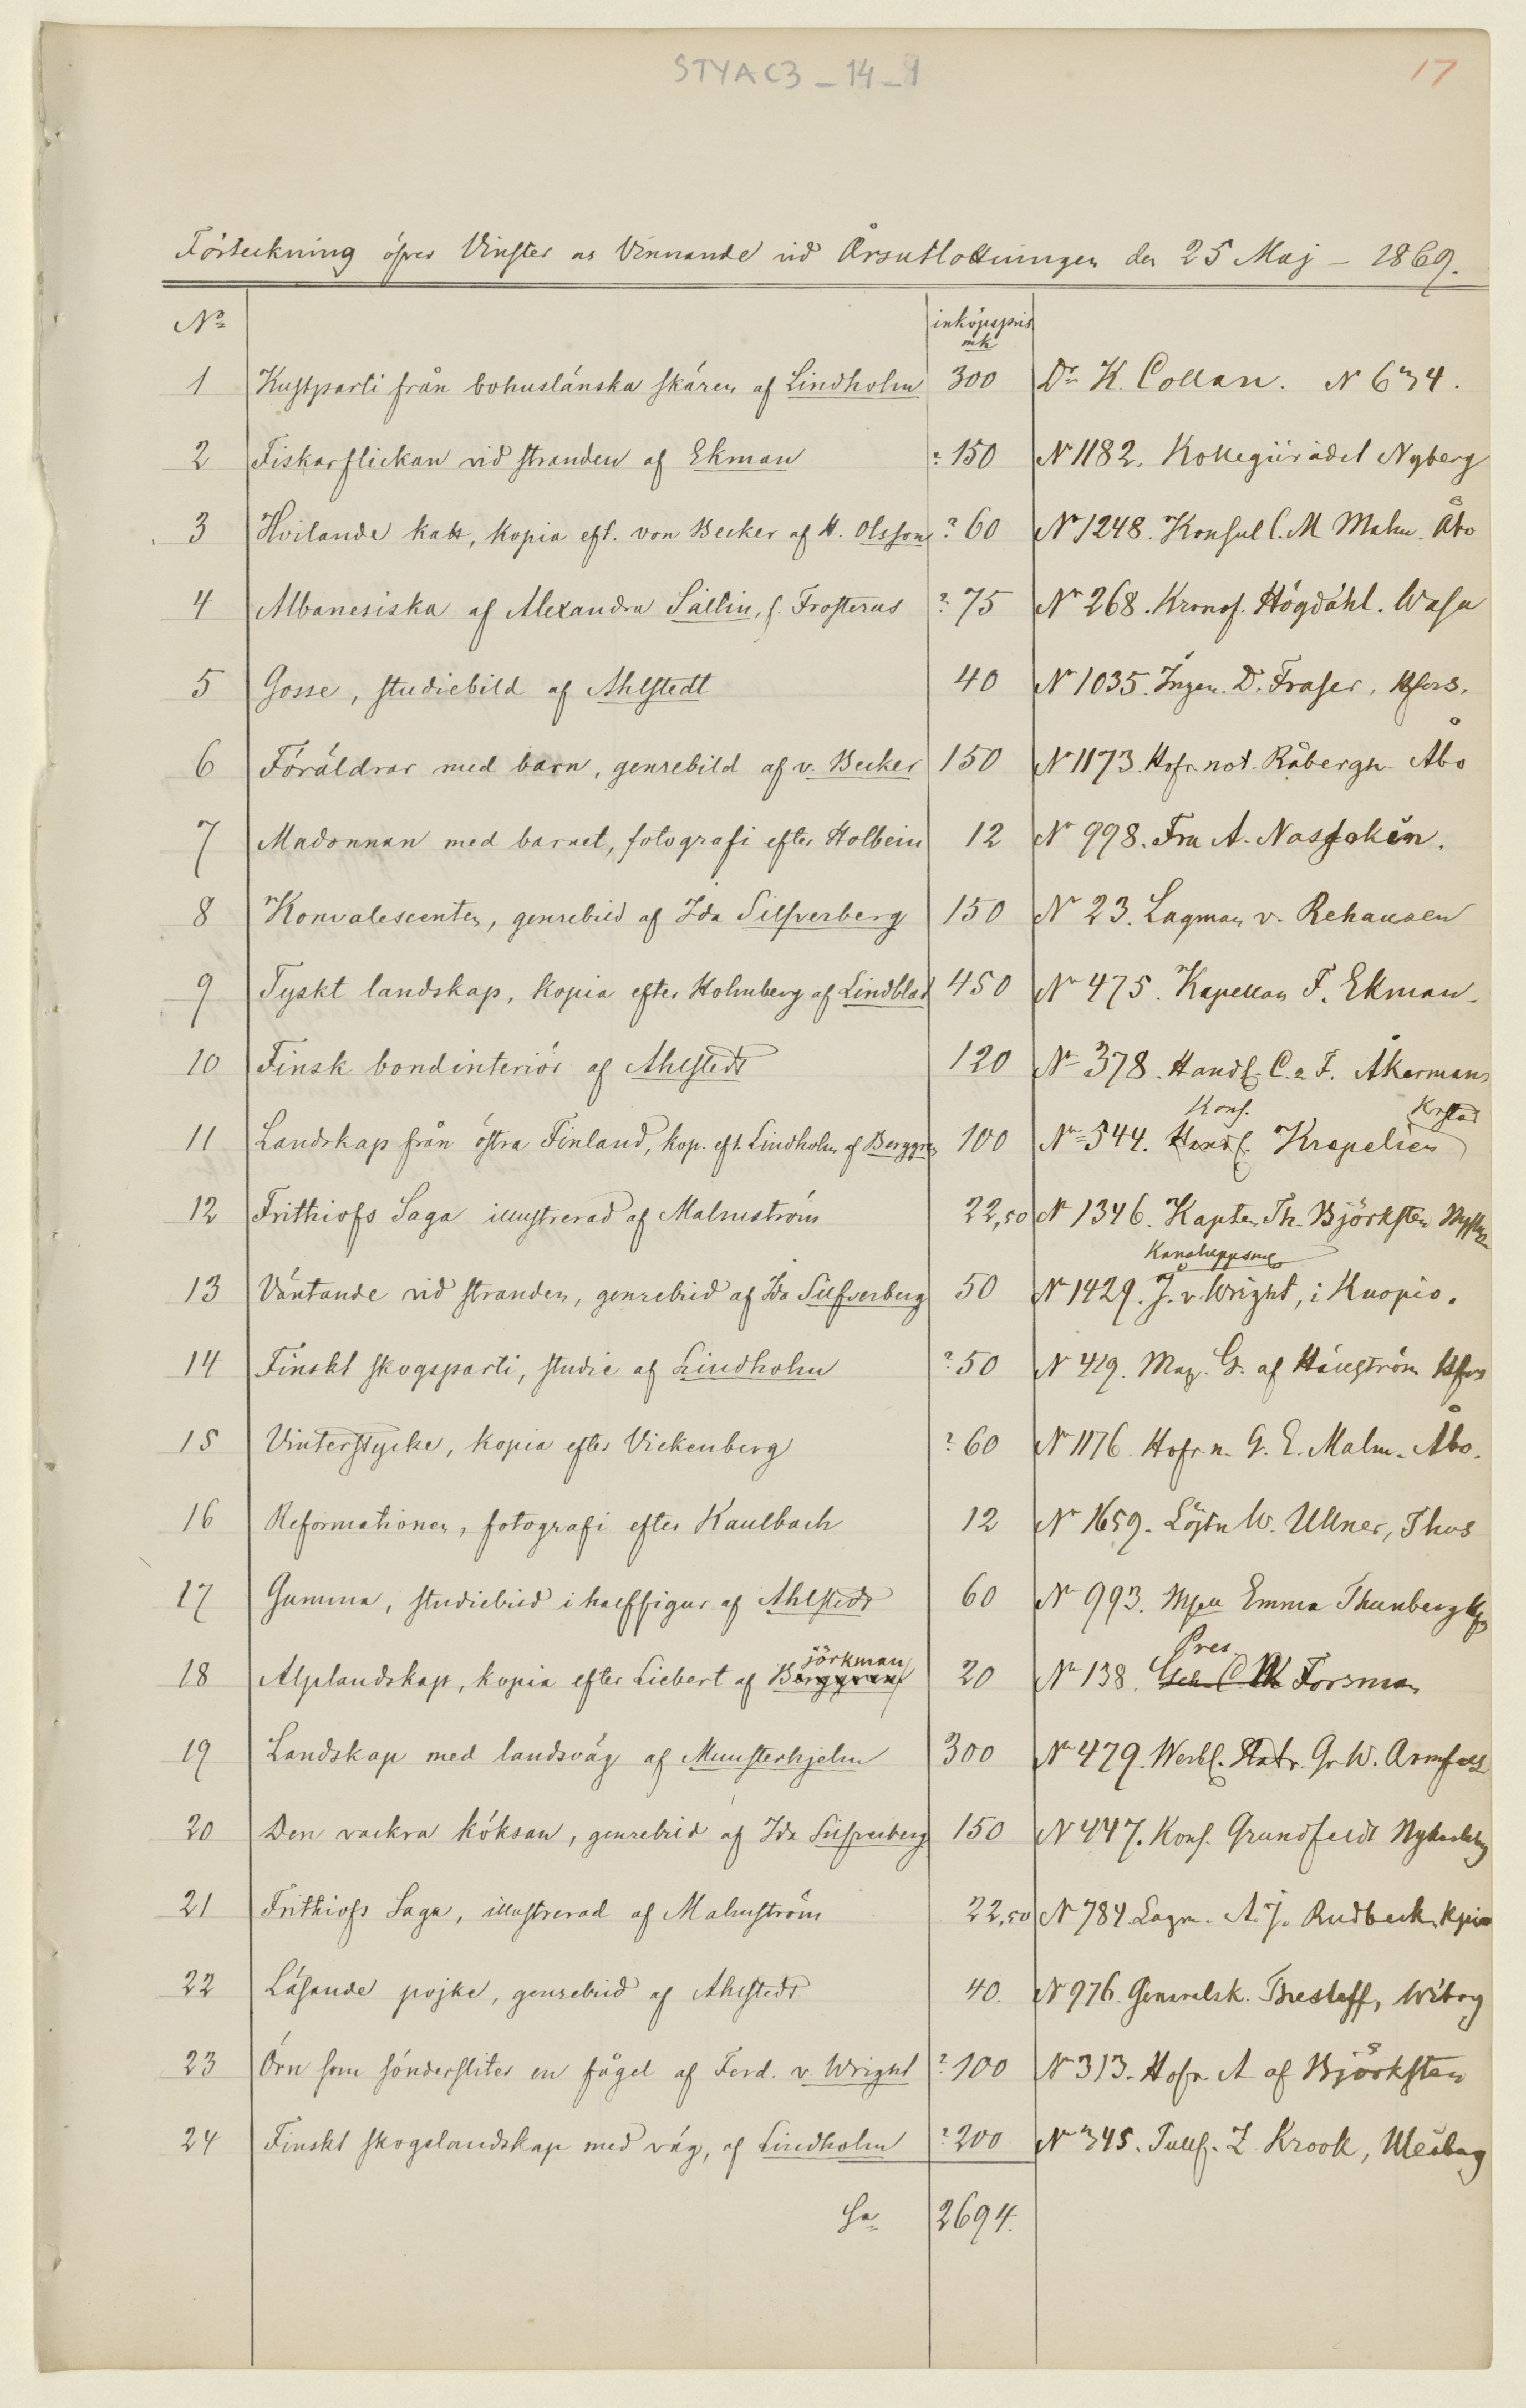 STYAC3_14_1
17
Förteckning öfver Vinster o. Vinnande vid Årsutlottningen den 25 Maj - 1869.
No inköpspris mk
1 Kustparti från bohuslänska skären af Lindholm 300 Dr K. Collan. N 634.
2 Fiskarflickan vid stranden af Ekman ? 150 N 1182. Kollegiirådet Nyberg
3 Hvilande katt, kopia eft. von Becker af H. Olsson ? 60 N 1248. Konsul C. M. Malm. Åbo
4 Albanesiska af Alexandra Såltin, f. Frosterus ? 75 N 268. Kronof. Högdahl. Wasa
5 Gosse, studiebild af Ahlstedt 40 N 1035. Ingen. D. Fraser, Hfors.
6 Föräldrar med barn, genrebild af v. Becker 150 N 1173. Hofr. not. Råbergh Åbo
7 Madonnan med barnet, fotografi efter Holbein 12 N 998. Fru A. Nasackin.
8 Konvalescenten, genrebild af Ida Silfverberg 150 N 23. Lagman v. Rehausen
9 Tyskt landskap, kopia efter Holmberg af Lindblad 450 N 475. Kapellan F. Ekman.
10 Finsk bondinteriör af Ahlstedt 120 N 378. Handl. C. a F. Åkerman
Konf. Krstad
11 Landskap från östra Finland, kop. eft. Lindholm af Berggren 100 N 544. Handl. Krepelien
12 Frithiofs Saga illustrerad af Malmström 22,50 N 1346. Kapten Th. Björksten
Kanaluppsm
13 Väntande vid stranden, genrebild af Ida Silfverberg 50 N 1429. J. v. Wright, i Kuopio.
14 Finskt skogsparti, studie af Lindholm ? 50 N 419. Mag. G. af Hällström Hfors
15 Vinterstycke, kopia efter Vickenberg ? 60 N 1176. Hofr. n. G. E. Malm. Åbo.
16 Reformationen, fotografi efter Kaulbach 12 N 1659. Löjtn W. Ullner, Thus
17 Gumma, studiebild i halffigur af Ahlstedt 60 N 993. Emma Thunberg Hfs
jörkman Pres
18 Alplandskap, kopia efter Liebert af Berggren 20 N 138. Forsman
19 Landskap med landsväg af Munsterhjelm 300 N 479. Werkl. Statr. Gr. W. Armfelt
20 Den vackra köksan, genrebild af Ida Silfverberg 150 N 447. Konf. Grundfeldt Nykarleby
21 Frithiofs Saga, illustrerad af Malmström 22,50 N 784. Lagm. A. J. Rudbeck, Kpio
22 Läsande pojke, genrebild af Ahlstedt 40. N 976. Generalsk. Thesleff, Wiborg
23 Örn som söndersliter en fågel af Ferd. v. Wright ? 100 N 313. Hofr. A af Björksten
24 Finskt skogslandskap med väg, af Lindholm ? 200 N 345. Tullf. Z Krook, Uleåborg
Sa 2694.